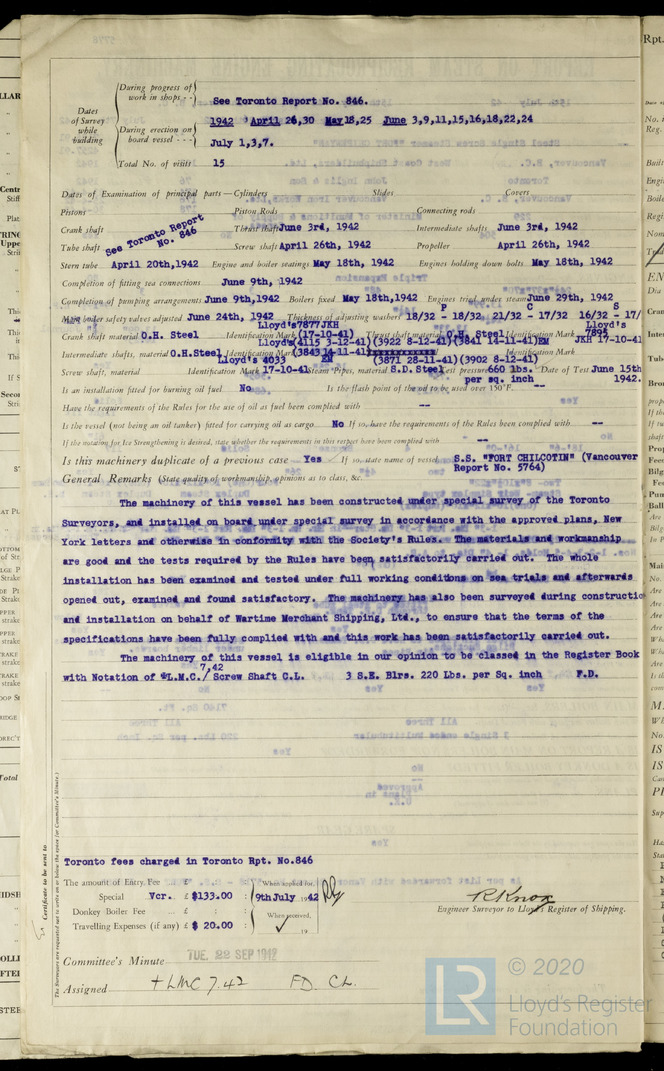 During progress of
work in shops - -
See Toronto Report No. 846.
Dates
of Survey
while
building
During erection on
board vessel - - -
1942 April 26,30 May 18,25 June 3,9,11,15,16,18,22,24
July 1,3,7.
Total No. of visits 15
Dates of Examination of principal parts—Cylinders Slides Covers
Pistons Piston Rods Connecting rods
See Toronto Report
No. 846
Crank shaft Thrust shaft June 3rd, 1942 Intermediate shafts June 3rd, 1942
Tube shaft Screw shaft April 26th, 1942 Propeller April 26th, 1942
Stern tube April 20th, 1942 Engine and boiler seatings May 18th, 1942 Engines holding down bolts May 18th, 1942
Completion of fitting sea connections June 9th, 1942
Completion of pumping arrangements June 9th, 1942 Boilers fixed May 18th, 1942 Engines tried under steam June 29th, 1942
P C S
Main boiler safety valves adjusted June 24th, 1942 Thickness of adjusting washers 18/32 - 18/32 21/32 - 17/32 16/32 - 17/
Lloyd's 7877 JKH Lloyd's
Crank shaft material O.H. Steel Identification Mark (17-10-41) Thrust shaft material O.H. Steel Identification Mark 7894
Lloyd's (4115 3-12-41)(3922 8-12-41)(3841 14-11-41)EM JKH 17-10-41
Intermediate shafts, material O.H.Steel Identification Mark (3843 14-11-41) Identification Mark
Lloyd's 4033 EM (3871 28-11-41)(3902 8-12-41)
Screw shaft, material Identification Mark 17-10-41 Steam Pipes, material S.D. Steel Test pressure 660 lbs. Date of Test June 15th
per sq. inch 1942.
Is an installation fitted for burning oil fuel No Is the flash point of the oil to be used over 150°F.
Have the requirements of the Rules for the use of oil as fuel been complied with --
Is the vessel (not being an oil tanker) fitted for carrying oil as cargo No If so, have the requirements of the Rules been complied with --
If the notation for Ice Strengthening is desired, state whether the requirements in this respect have been complied with --
Is this machinery duplicate of a previous case Yes If so, state name of vessel S.S. "FORT CHILCOTIN" (Vancouver
Report No. 5764)
General Remarks (State quality of workmanship, opinions as to class, &c.
The machinery of this vessel has been constructed under special survey of the Toronto
Surveyors, and installed on board under special survey in accordance with the approved plans, New
York letters and otherwise in conformity with the Society's Rules. The materials and workmanship
are good and the tests required by the Rules have been satisfactorily carried out. The whole
installation has been examined and tested under full working conditions on sea trials and afterwards
opened out, examined and found satisfactory. The machinery has also been surveyed during constructio
and installation on behalf of Wartime Merchant Shipping, Ltd., to ensure that the terms of the
specifications have been fully complied with and this work has been satisfactorily carried out.
The machinery of this vessel is eligible in our opinion to be classed in the Register Book
7,42
with Notation of L.M.C./ Screw Shaft C.L. 3 S.E. Blrs. 220 Lbs. per Sq. inch F.D.
Toronto fees charged in Toronto Rpt. No.846
The amount of Entry Fee £ : : When applied for,
Special Vcr. £ $133.00 : 9th July 1942
Donkey Boiler Fee £ : : When received,
Travelling Expenses (if any) £ $ 20.00 : 19
R Knox
Engineer Surveyor to Lloyd's Register of Shipping.
Committee's Minute TUE. 22 SEP 1942
Assigned + LMC 7.42 FD. CL.
Certificate to be sent to
The Surveyors are requested not to write on or below the space for Committee's Minute.
© 2020
Lloyd's Register
Foundation
LR
Rpt.